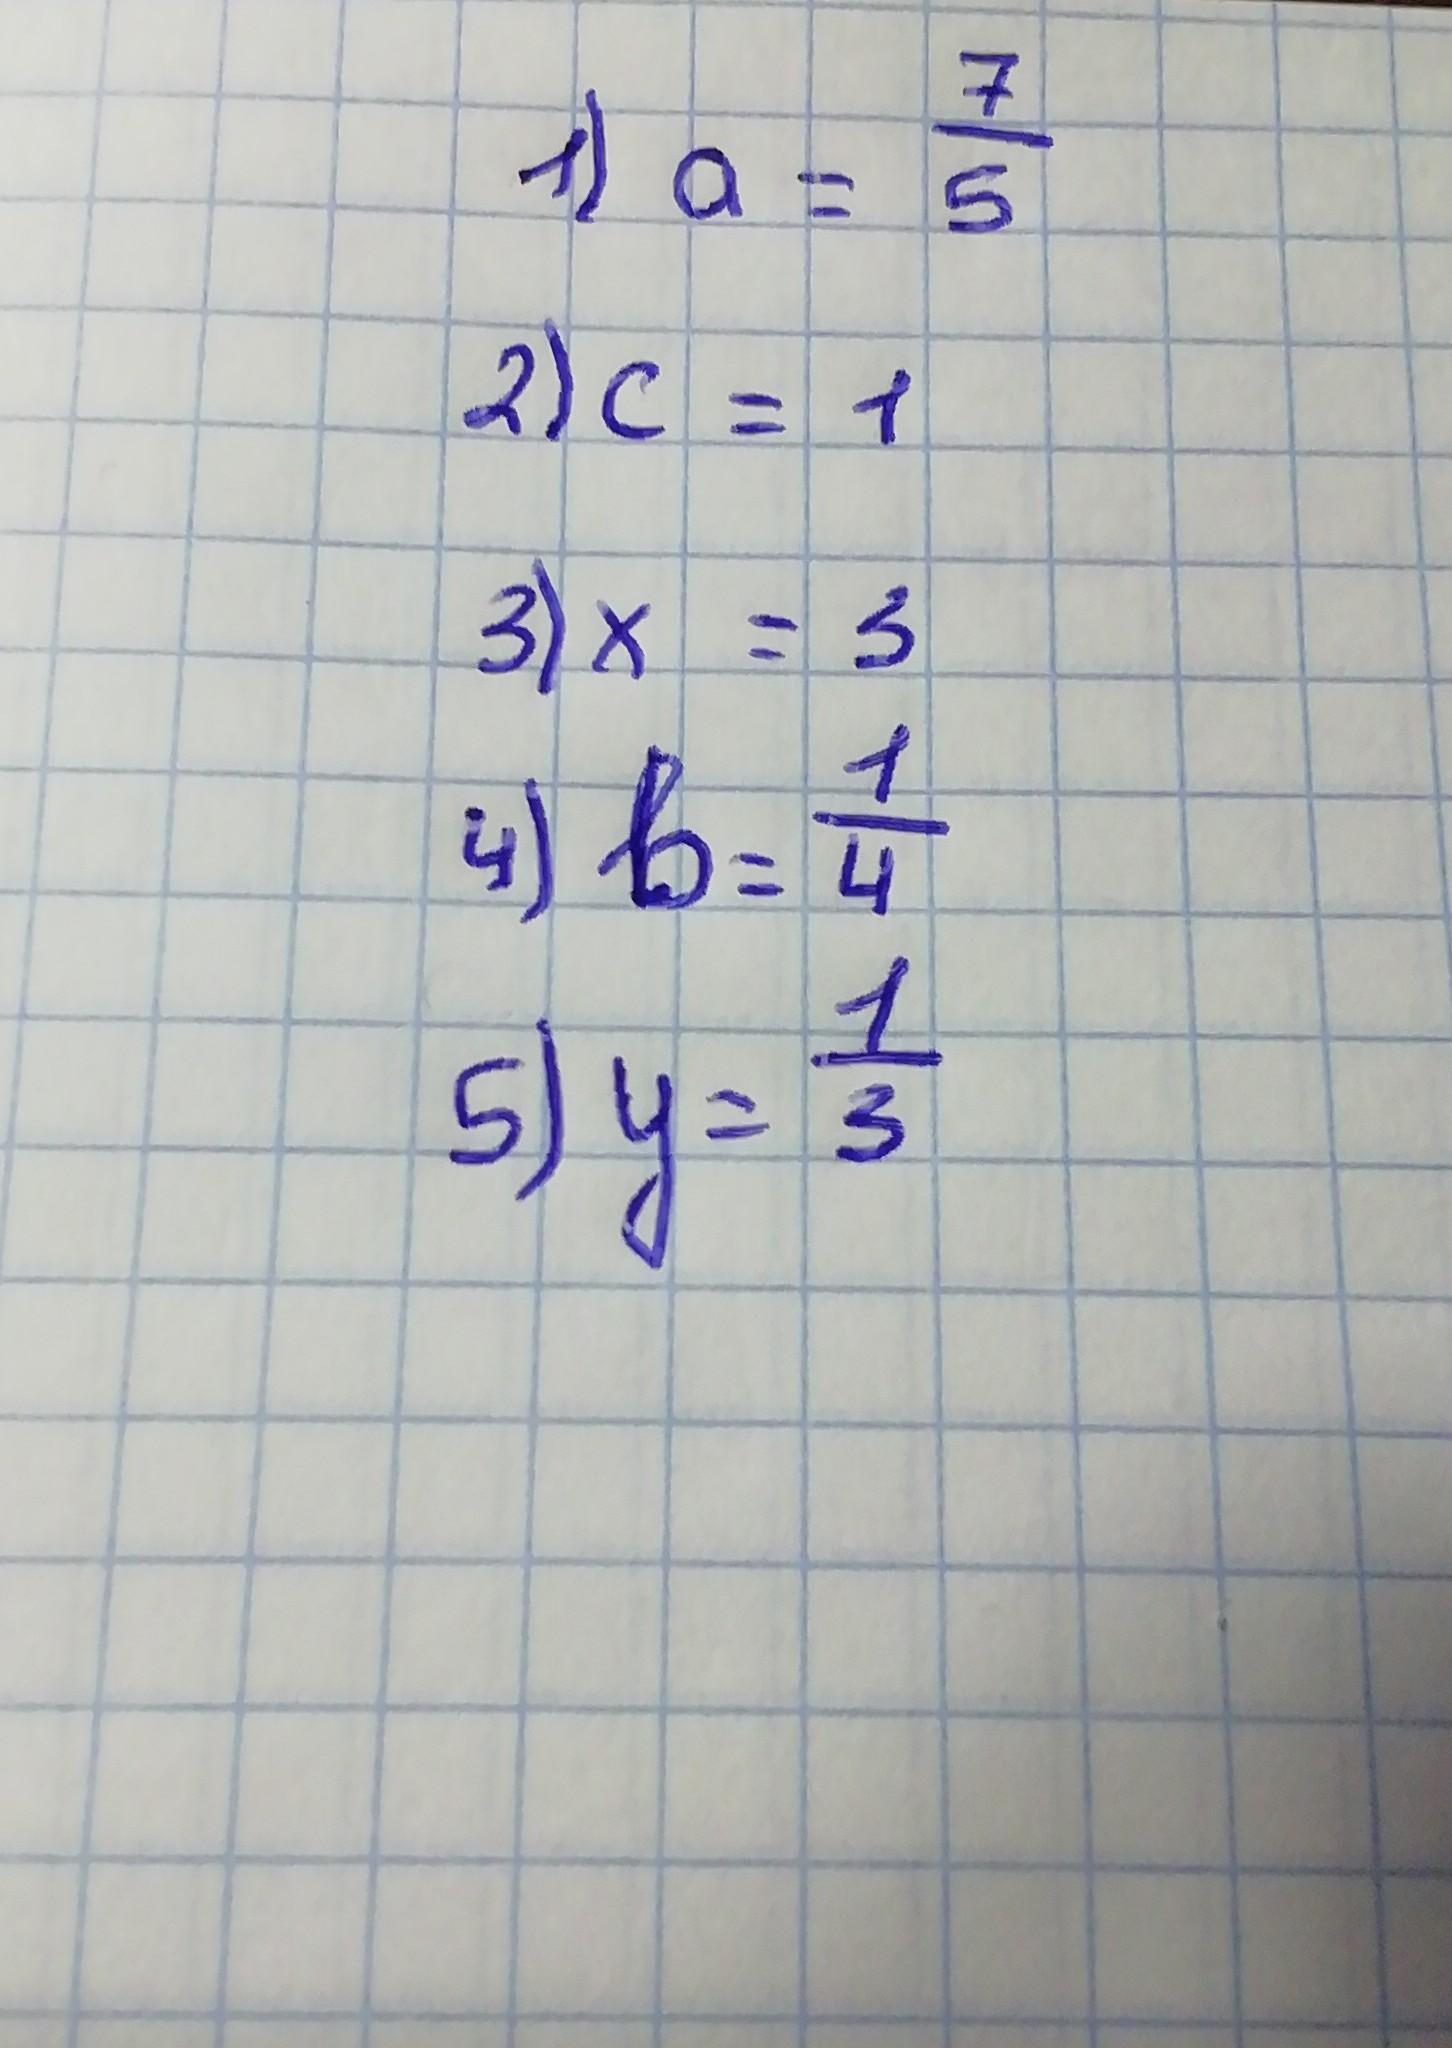 1) a = 7/5
2) c = 1
3) x = 3
4) b = 1/4
5) y = 1/3